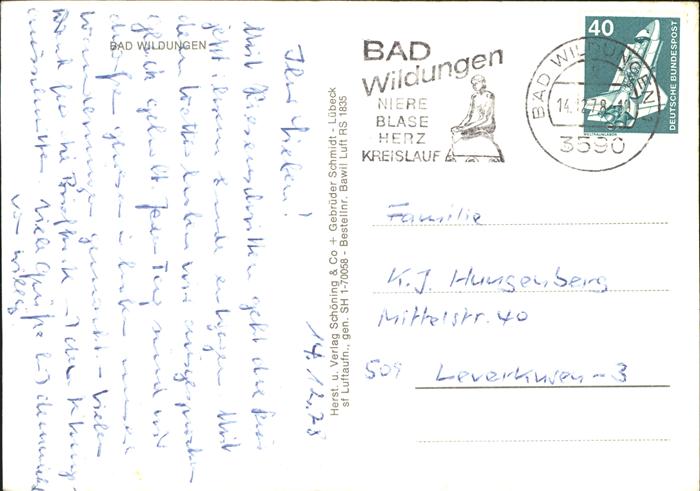 BAD WILDUNGEN
14.12.78
Ihr Lieben!
Mit Riesenschritten geht die Kur
jetzt ihrem Ende entgegen. Mit
dem Wetter haben wir ausgesprochen
Glück gehabt. Jeden Tag sind wir
draußen gewesen u. haben unsere
Wanderungen gemacht. Vielen
Dank für die
Viele Grüße bis demnächst
von
Herst. u. Verlag Schöning & Co + Gebrüder Schmidt - Lübeck
sf Luftaufn., gen. SH 1-70058 - Bestellnr. Bawil Luft RS 1835
BAD
Wildungen
NIERE
BLASE
HERZ
KREISLAUF
BAD WILDUNGEN
14.12.78
3590
40
DEUTSCHE BUNDESPOST
WELTRAUMLABOR
Familie
K.J. Hungenberg
Mittelstr. 40
509 Leverkusen-3